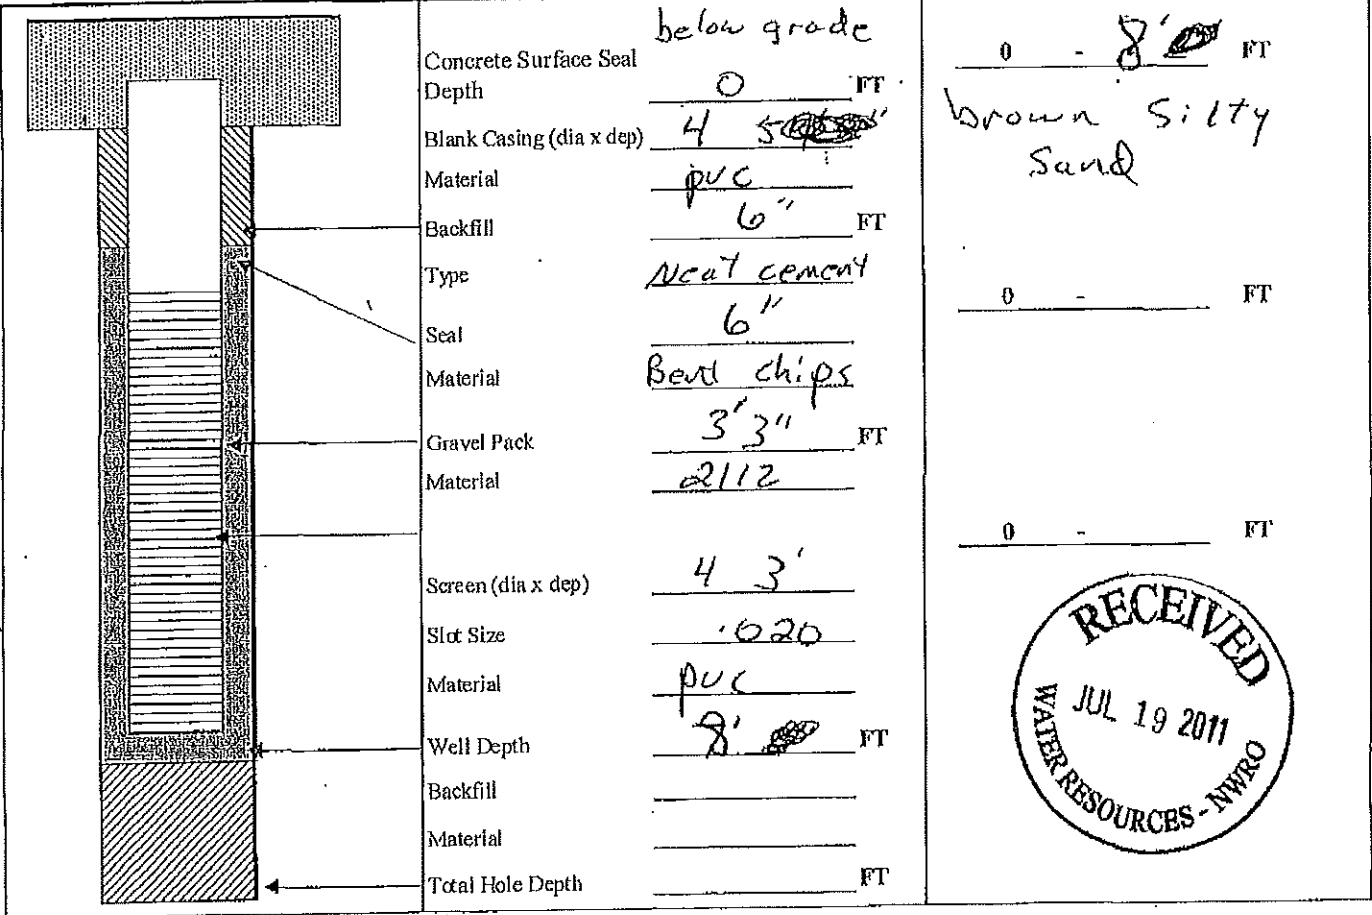 below grade
Concrete Surface Seal
Depth 0 FT
Blank Casing (dia x dep) 4 5
Material pvc
Backfill 6" FT
Type Neat cement
Seal 6"
Material Bent chips
Gravel Pack 3' 3" FT
Material 2112
Screen (dia x dep) 4 3'
Slot Size .020
Material pvc
Well Depth 8' FT
Backfill
Material
Total Hole Depth FT
0 - 8' FT
brown Silty
Sand
0 - FT
0 - FT
RECEIVED
JUL 19 2011
WATER RESOURCES - NWRO